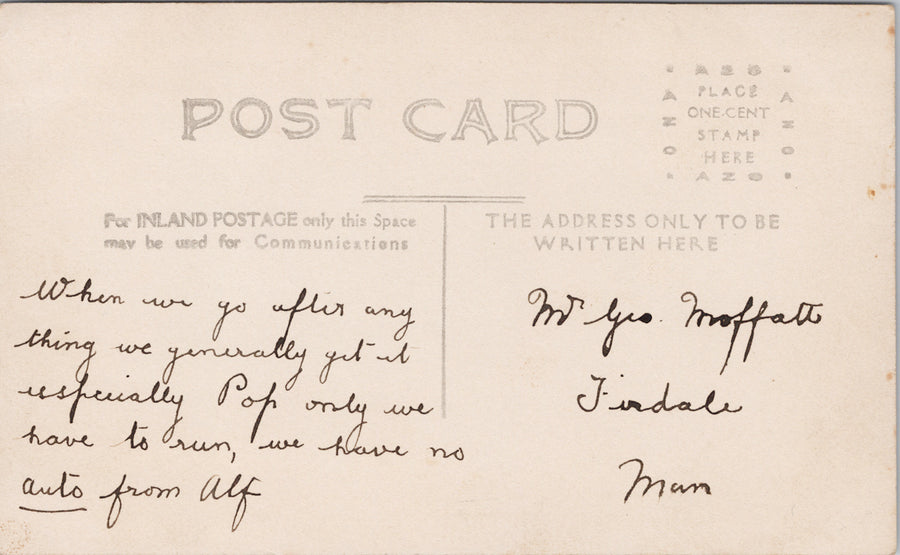 POST CARD
AZO
PLACE
ONE-CENT
STAMP
HERE
AZO
AZO
AZO
For INLAND POSTAGE only this Space
may be used for Communications
THE ADDRESS ONLY TO BE
WRITTEN HERE
When we go after any
thing we generally get it
especially Pop only we
have to run, we have no
auto from Alf
Mr Geo. Moffatt
Firdale
Man